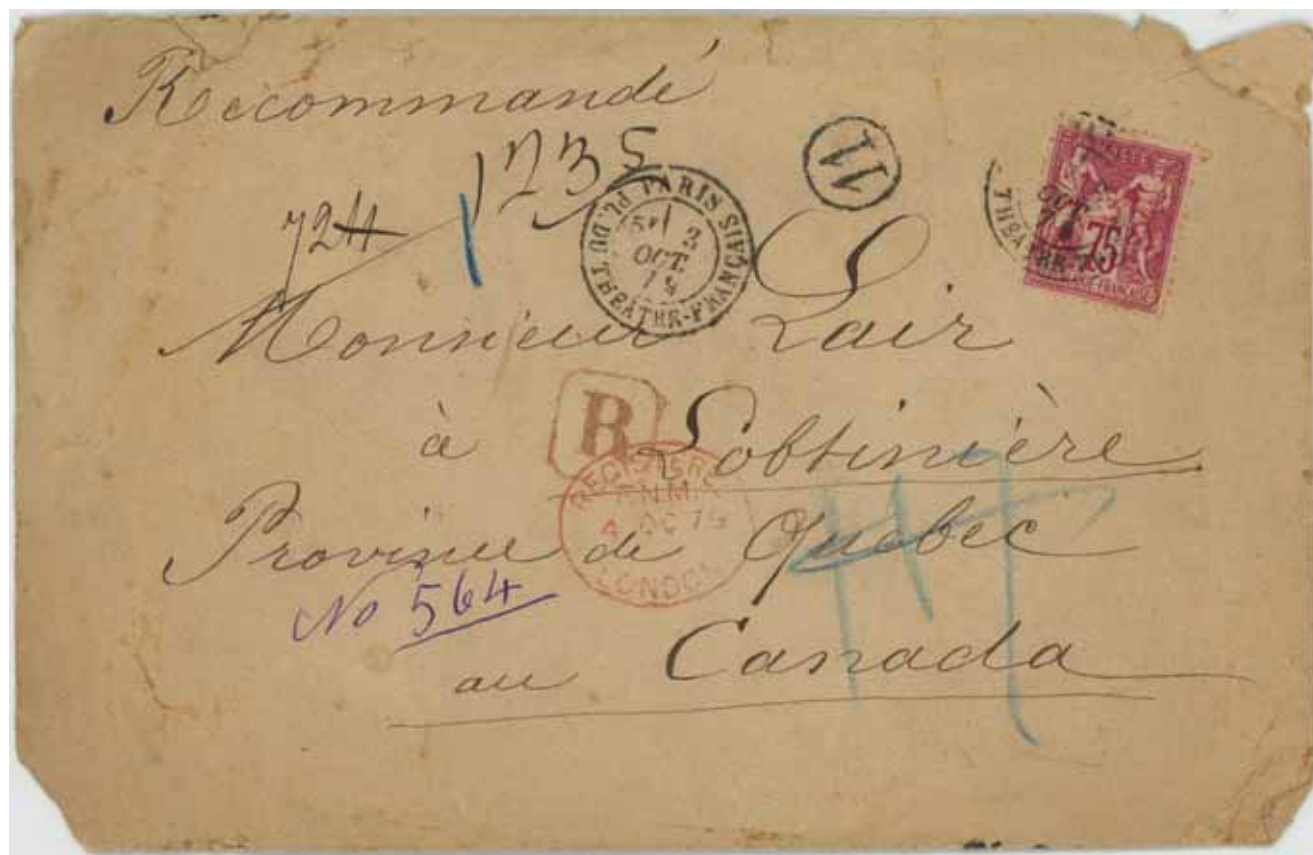 Recommandé
1235
11
724
PARIS
PL. DU THÉATRE-FRANÇAIS
OCT.
75
Monsieur Lair
R
à Lobtinière
REGISTERED
4 OC 79
LONDON
Province de Québec
No 564
au Canada